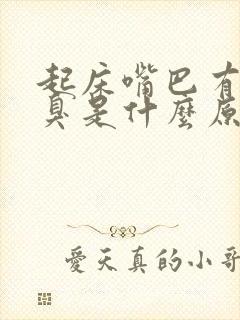 起床嘴巴有
臭是什麼原
愛天真的小哥